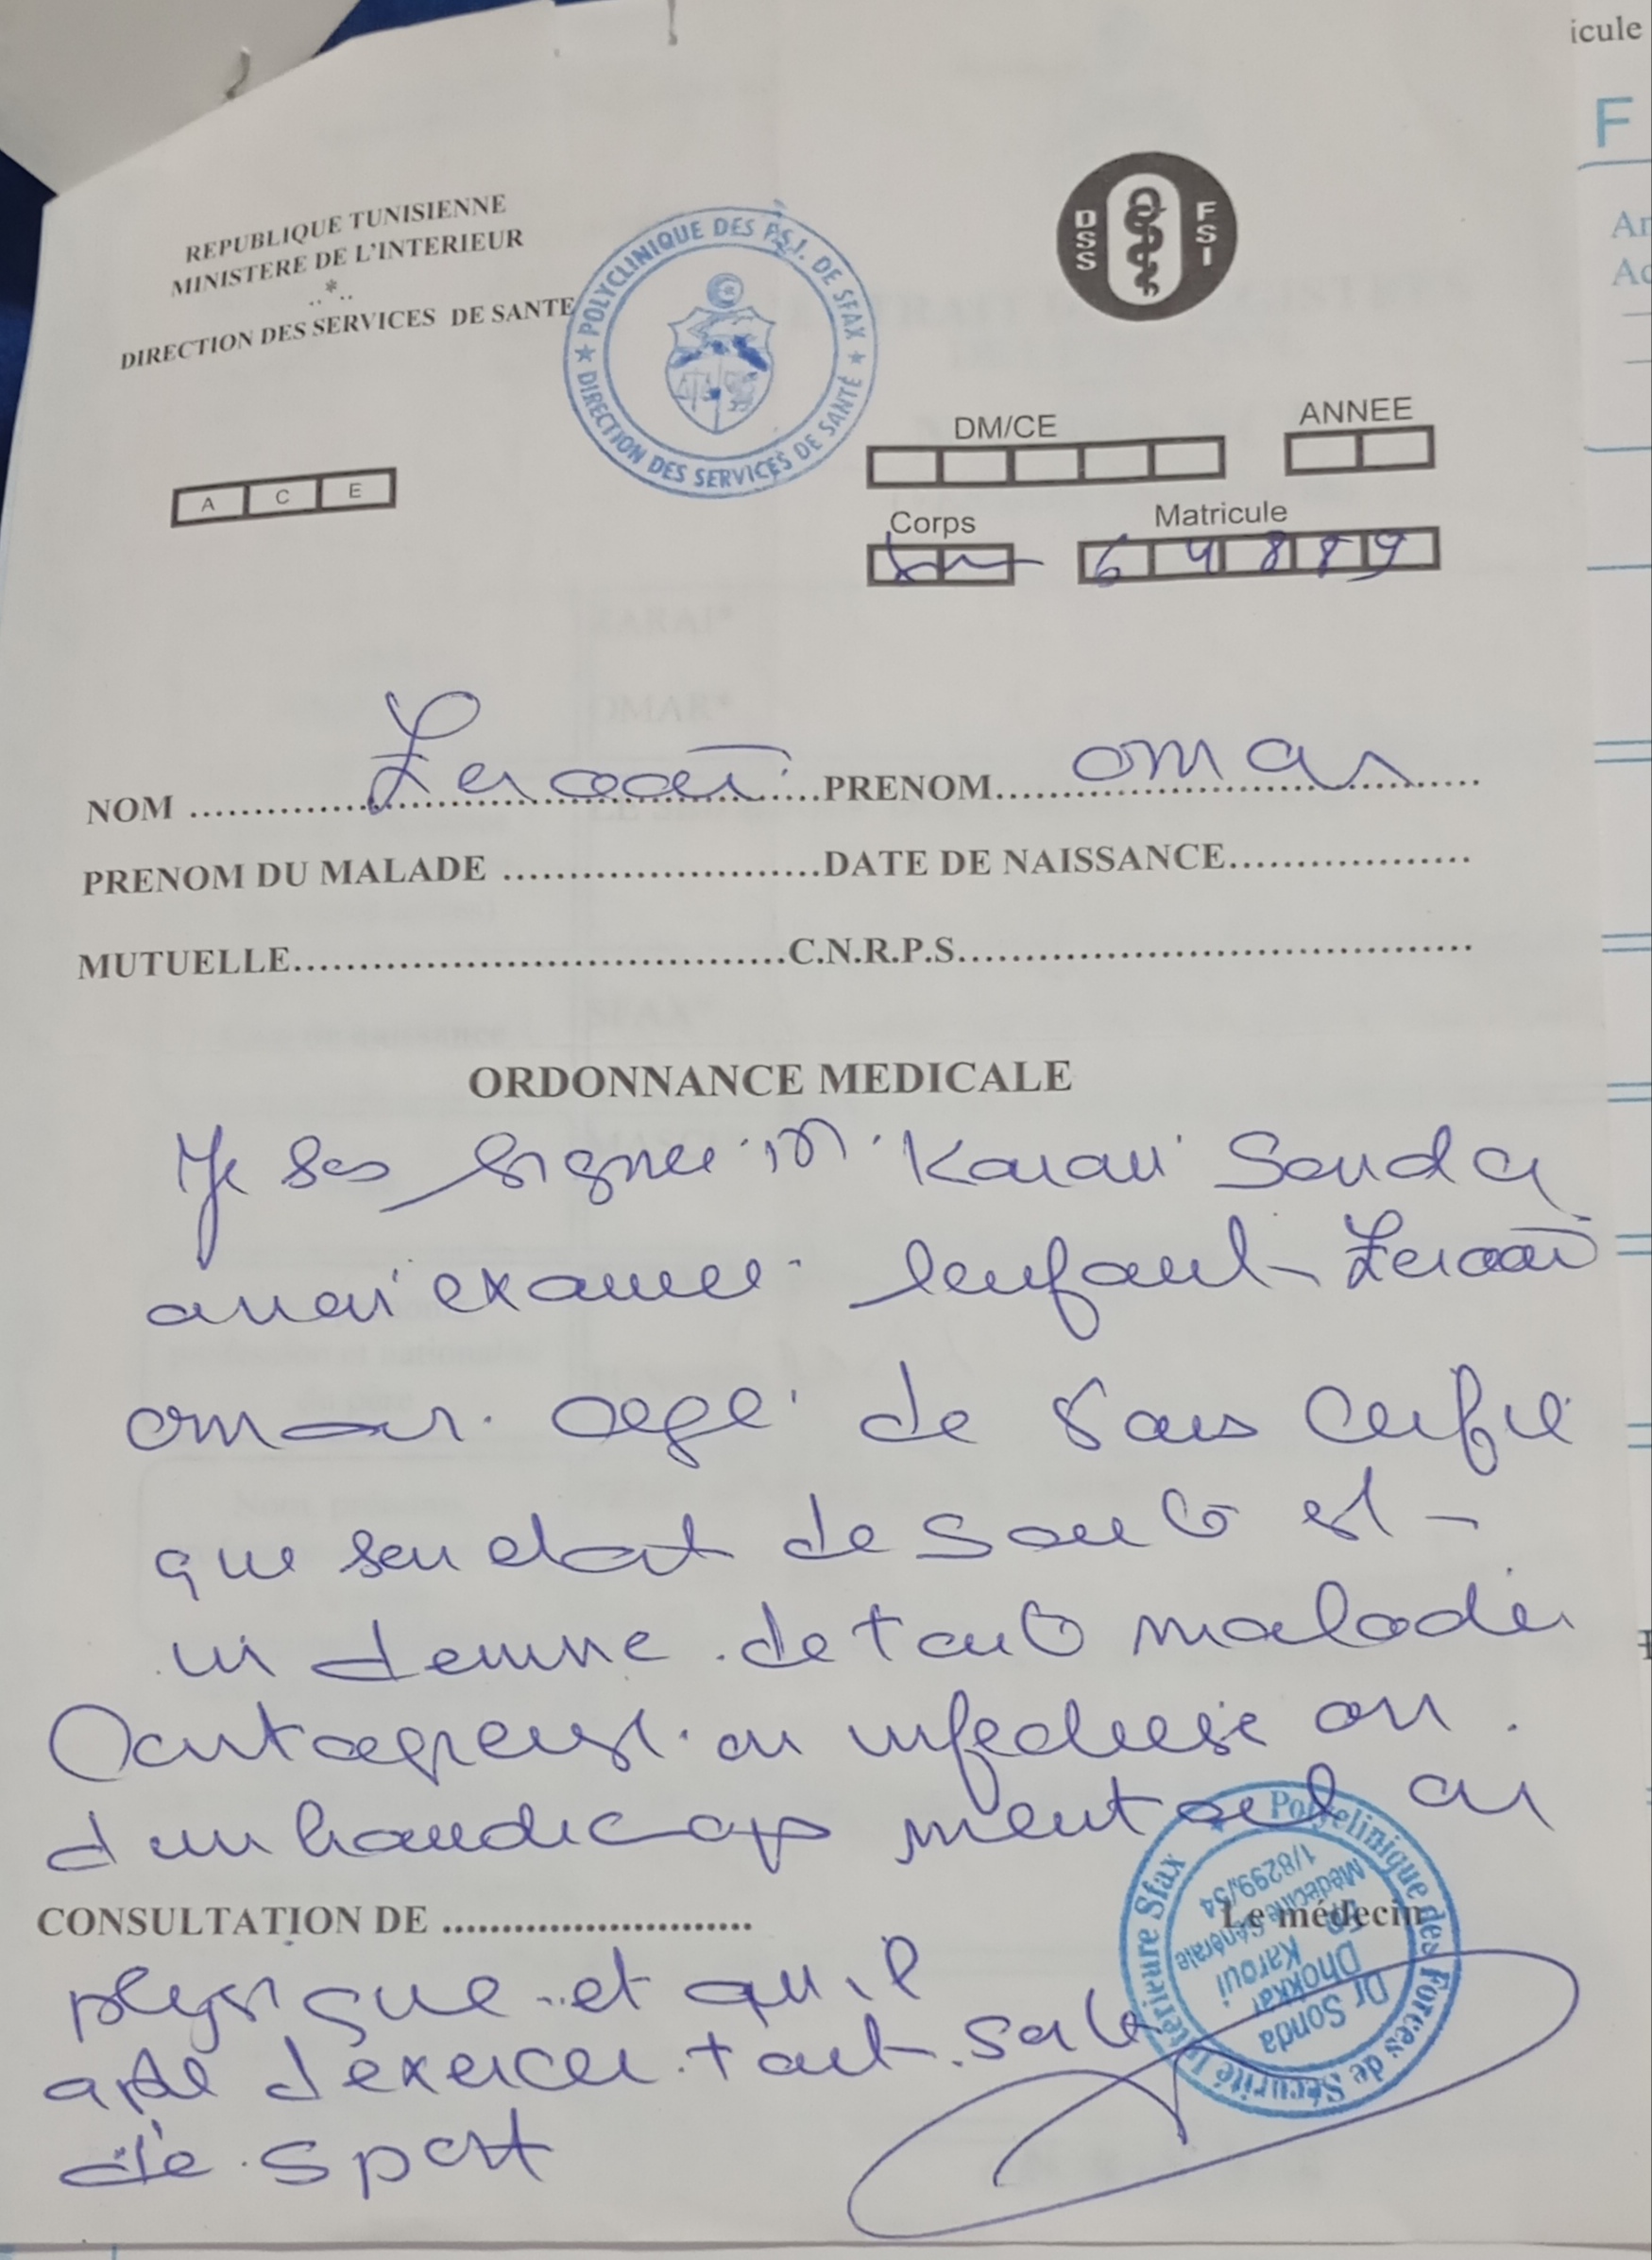 icule
F
REPUBLIQUE TUNISIENNE
MINISTERE DE L'INTERIEUR
..*..
DIRECTION DES SERVICES DE SANTE
★ POLYCLINIQUE DES F.S.I. DE SFAX ★
DIRECTION DES SERVICES DE SANTÉ
DSS FSI
A C E
DM/CE ANNEE
Corps Matricule
64889
NOM PRENOM omar
PRENOM DU MALADE DATE DE NAISSANCE
MUTUELLE C.N.R.P.S
ORDONNANCE MEDICALE
Je signee Karoui Sonda
lenfant
omar age de
que son etat de Sante est
in demne de toute maladie
Contagieuse ou infectieuse ou
d un handicap mental ou
CONSULTATION DE Le médecin
physique et qu il
apte d'exercer tout
de sport
Polyclinique des Forces de Sécurité Intérieure Sfax
Dr Sonda
Dhokkar
Ep Karoui
Médecine Générale
1/8299/54